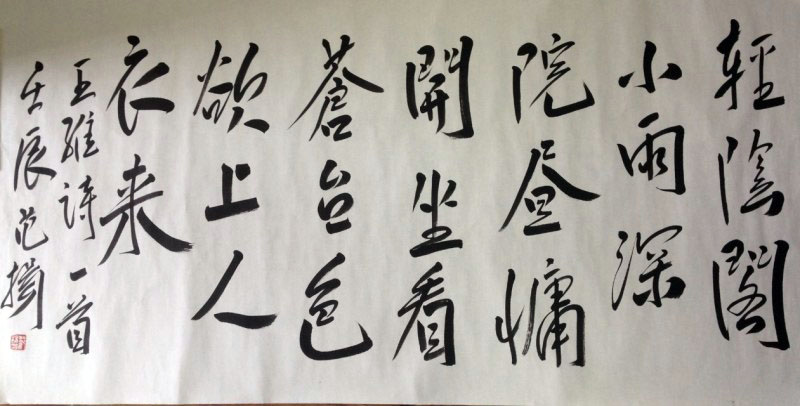 輕陰閣
小雨深
院昼慵
開坐看
蒼台色
欲上人
衣来
王維诗一首
壬辰范